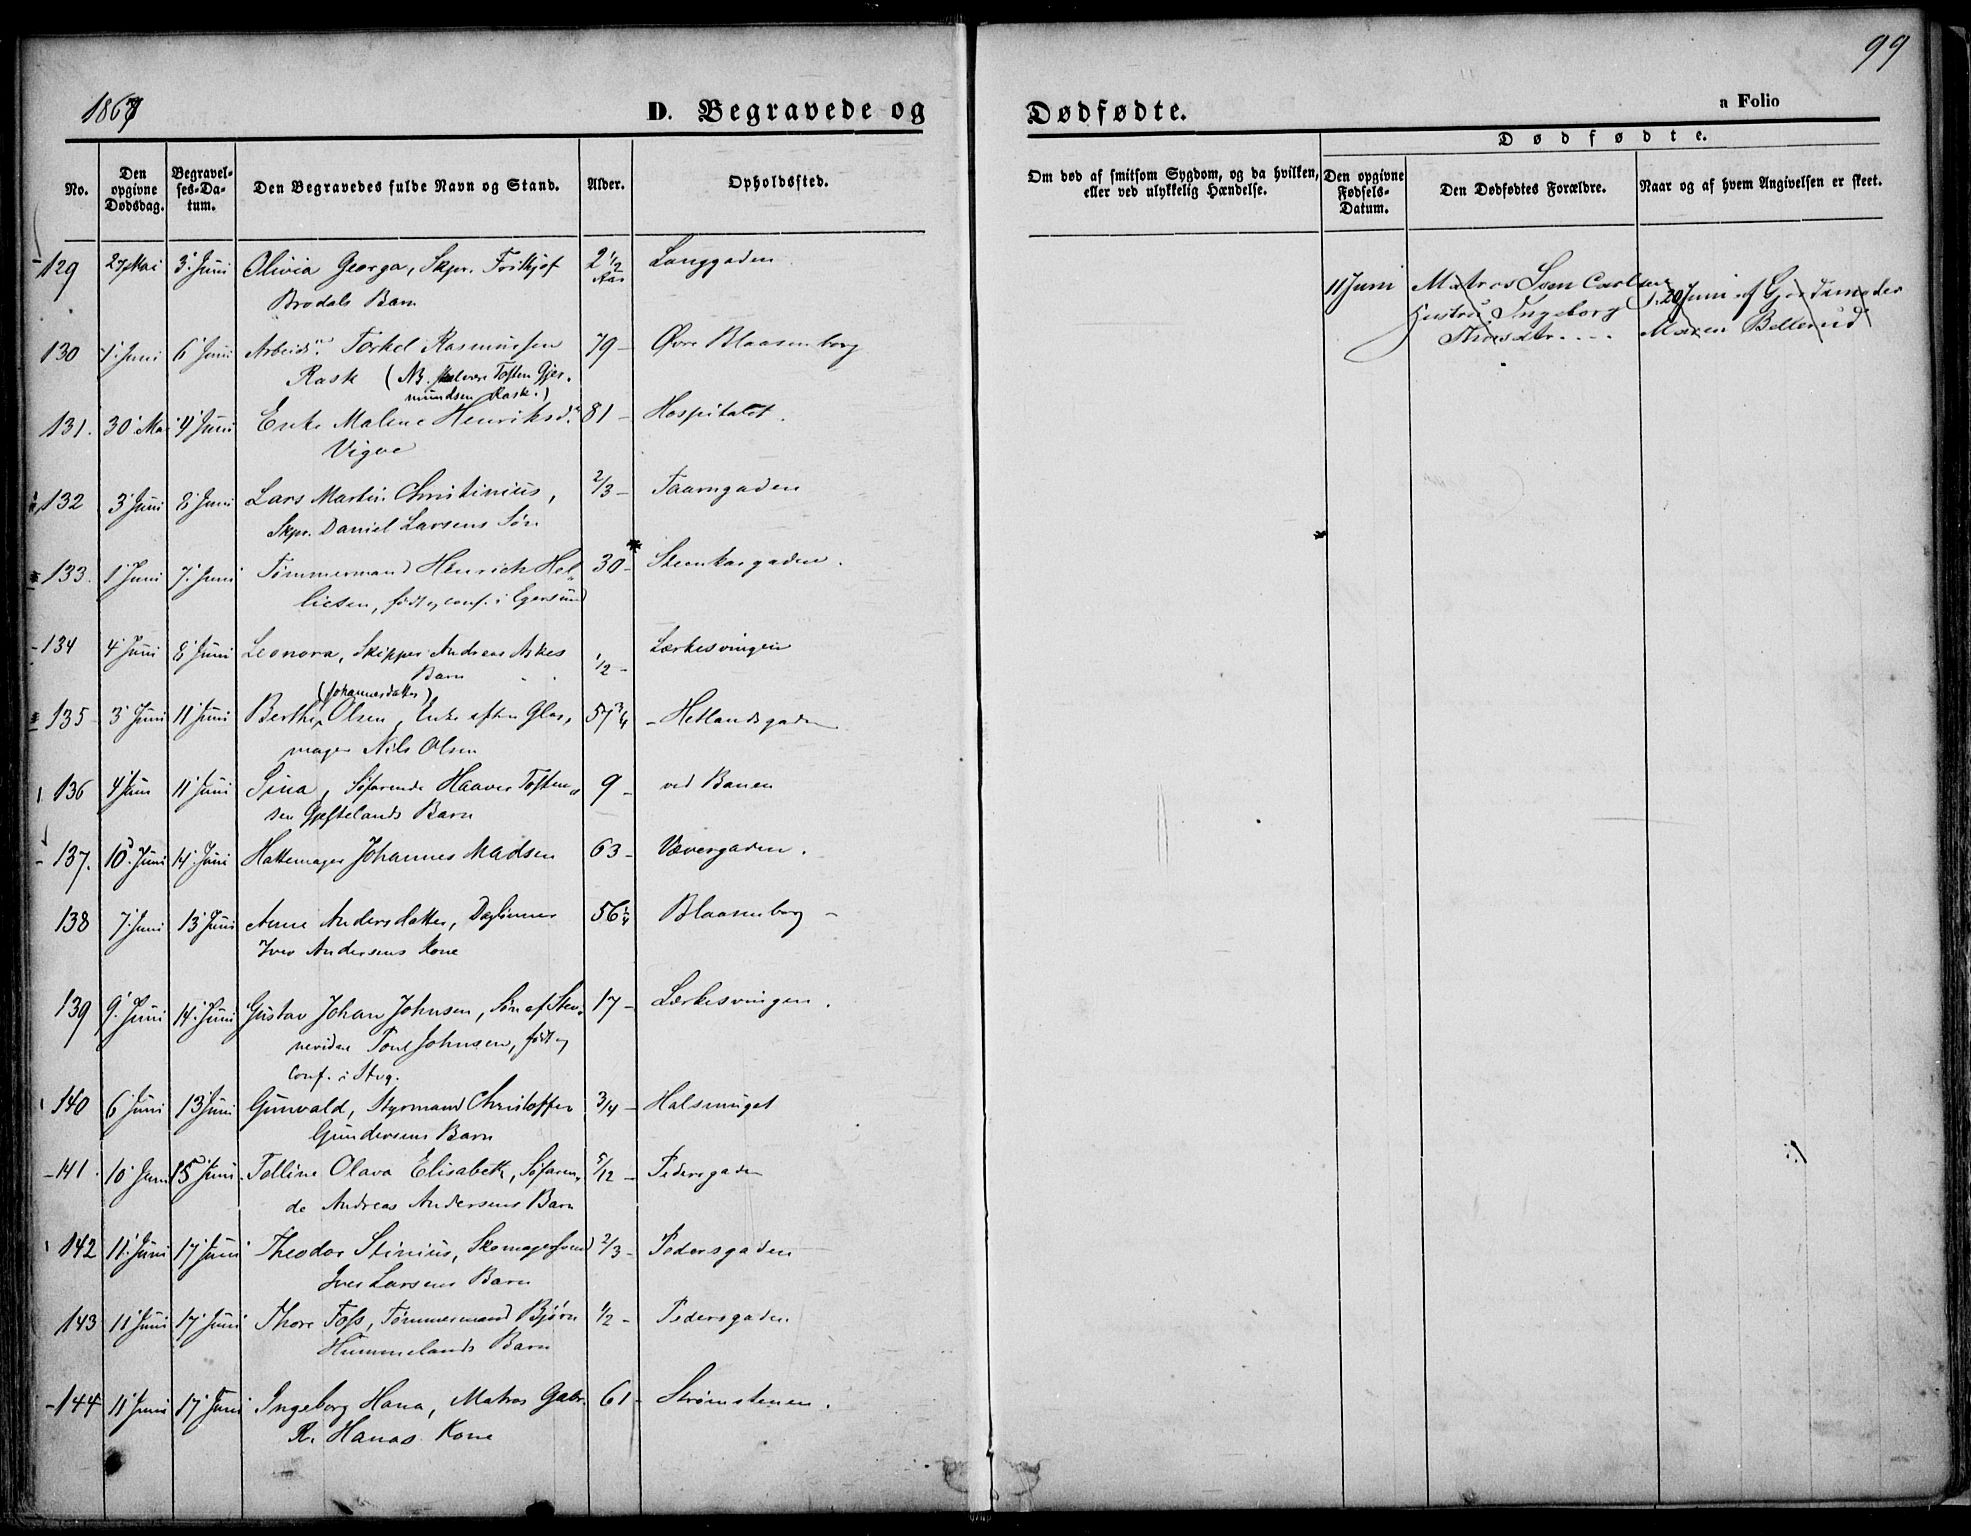 99
1867
D. Begravede og Dødfødte.
a Folio
No.
Den opgivne Dødsdag.
Begravelses-Datum.
Den Begravedes fulde Navn og Stand.
Alder.
Opholdssted.
Om død af smitsom Sygdom, og da hvilken, eller ved ulykkelig Hændelse.
Dødfødte.
Den opgivne Fødsels-Datum.
Den Dødfødtes Forældre.
Naar og af hvem Angivelsen er skeet.
129 27 Mai 3 Juni Olivia Georga, Skpr. Frithjof 2 1/2 Aar Langgaden
Brodals Barn
130 1 Juni 6 Juni Arbeids. Torkel Rasmussen 79 - Øvre Blaasenborg
Rask (NB. skal være Tosten Gjer-
mundsen Rask.)
131. 30 Mai 4 Juni Enke Malene Henriksd. 81 - Hospitalet.
Vigve
132 3 Juni 8 Juni Lars Martin Christinius, 2/3 - Taarngaden
Skpr. Daniel Larsens Søn
133. 1 Juni 7. Juni Tømmermand Henrich Hel- 30 - Steenkargaden.
liesen, født og conf. i Egersund
134 4 Juni 8 Juni Leonora, Skipper Andreas Askes 1/2 - Lærkesvingen
Barn
(Johannesdatter)
135 3 Juni 11 Juni Berthe Olsen, Enke efter Glas- 57 3/4 - Hetlandsgaden
mager Nils Olsen
136 4 Juni 11 Juni Sina, Søfarende Haaver Tosten- 9 - ved Banen
sen Gjestelands Barn
137. 10. Juni 14. Juni Hattemager Johannes Madsen 63 - Vævergaden.
138 7. Juni 13 Juni Anne Andersdatter, Daglønner 56 1/4 Blaasenborg -
Iver Andersens Kone
139 9. Juni 14. Juni Gustav Johan Johnsen, Søn af Ste- 17 - Lærkesvingen.
nevider Poul Johnsen, født og
Conf. i Stvg.
140 6 Juni 13 Juni Gunvald, Styrmand Christoffer 3/4 - Halsmuget
Gundersens Barn
141. 10 Juni 15 Juni. Talline Olava Elisabeth, Søfaren- 5/12 - Pedersgaden
de Andreas Andersens Barn
142 11. Juni 17 Juni Theodor Stinius, Skomagersvend 2/3 - Pedersgaden
Iver Larsens Barn
143 11 Juni 17 Juni Thore Foss, Tømmermand Bjørn 1/2 - Pedersgaden
Hummelands Barn
144 11 Juni 17 Juni Ingeborg Hana, Matros Gabr. 61 - Strømstenen.
R. Hanas Kone
11 Juni Matros Sven Carlsen 20 Juni af Gjordemoder
Hustru Ingeborg Maren Bellerud